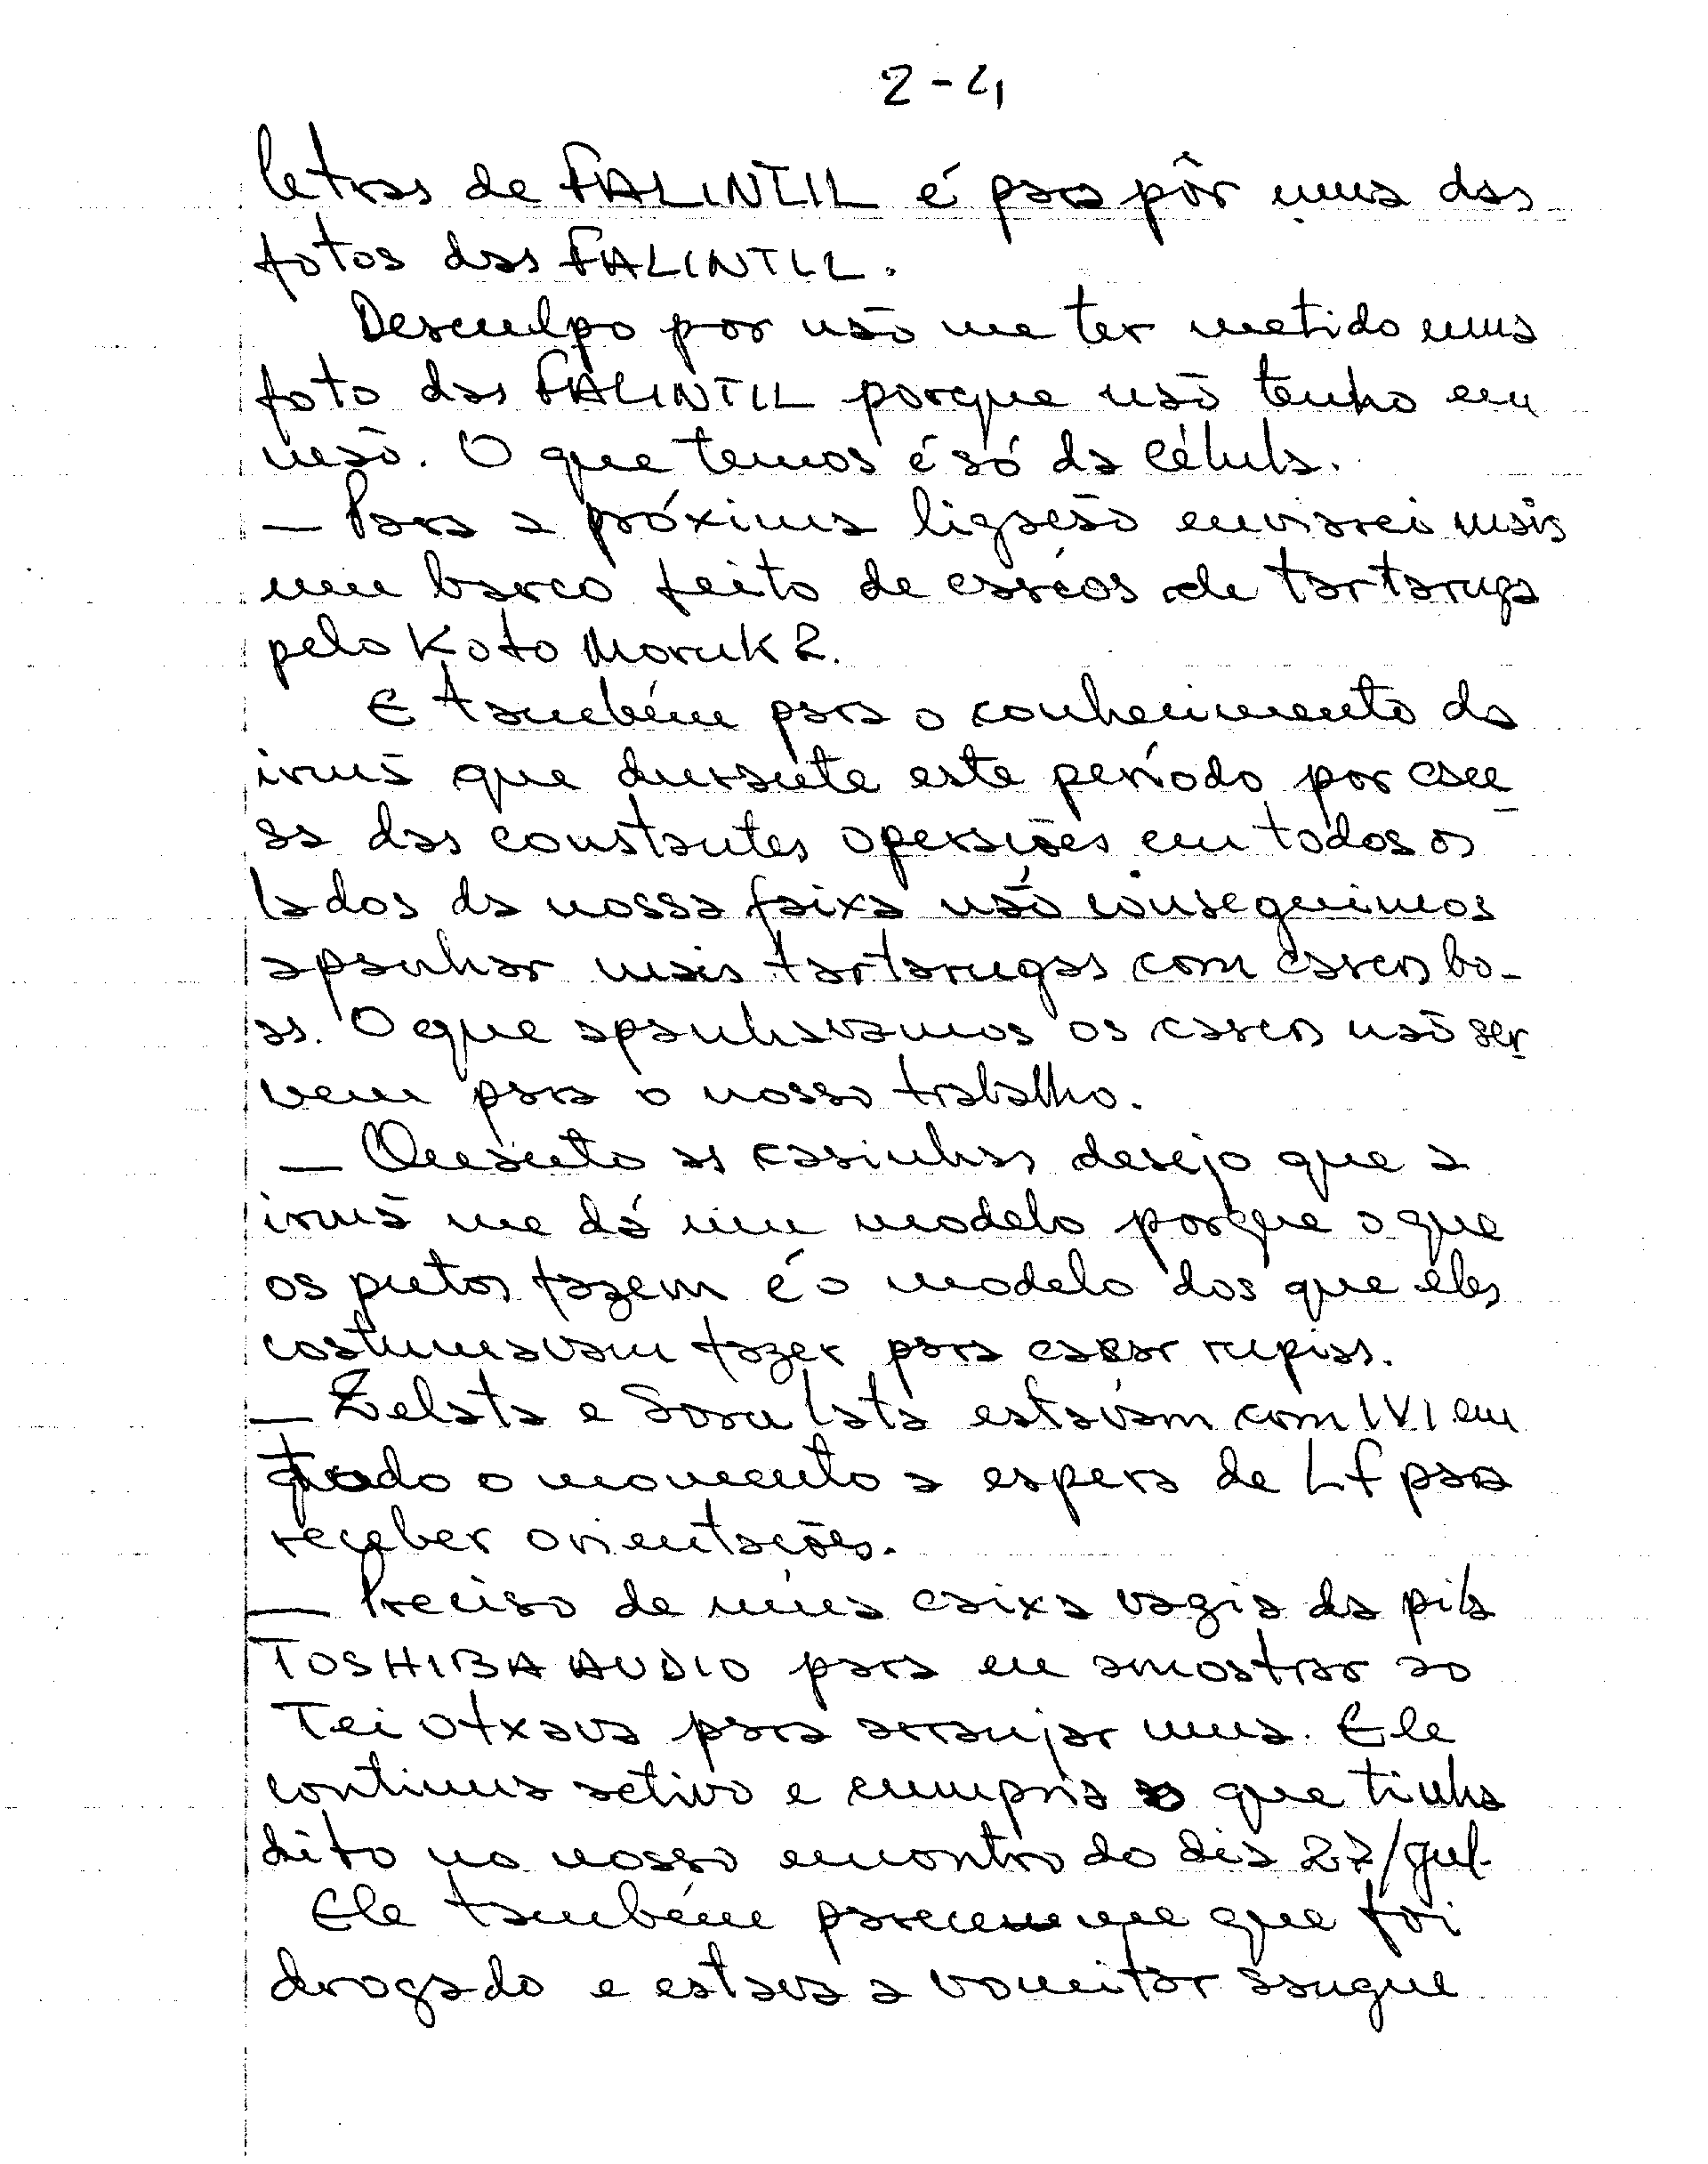 2-4
letras de FALINTIL é para pôr uma das
fotos das FALINTIL.
Desculpo por não me ter metido uma
foto das FALINTIL porque não tenho em
mão. O que temos é só da célula.
— Para a próxima ligação enviarei mais
um barco feito de cascos de tartaruga
pelo Koto Moruk 2.
E também para o conhecimento da
irmã que durante este período por cau
sa das constantes operações em todos os
lados da nossa faixa não conseguimos
apanhar mais tartarugas com cascos bo-
as. O que apanhavamos os cascos não ser
vem para o nosso trabalho.
— Quanto as casinhas desejo que a
irmã me dá um modelo porque o que
os putos fazem é o modelo dos que eles
costumavam fazer para caçar rupias.
— Zelata e Soru lata estavam com IVI em
todo o momento a espera de Lf para
receber orientações.
— Preciso de uma caixa vazia da pila
TOSHIBA AUDIO para eu amostrar ao
Tei Otxava para arranjar uma. Ele
continua activo e cumpria o que tinha
dito no nosso encontro do dia 27/Jul.
Ele também parece me que foi
drogado e estava a vomitar sangue